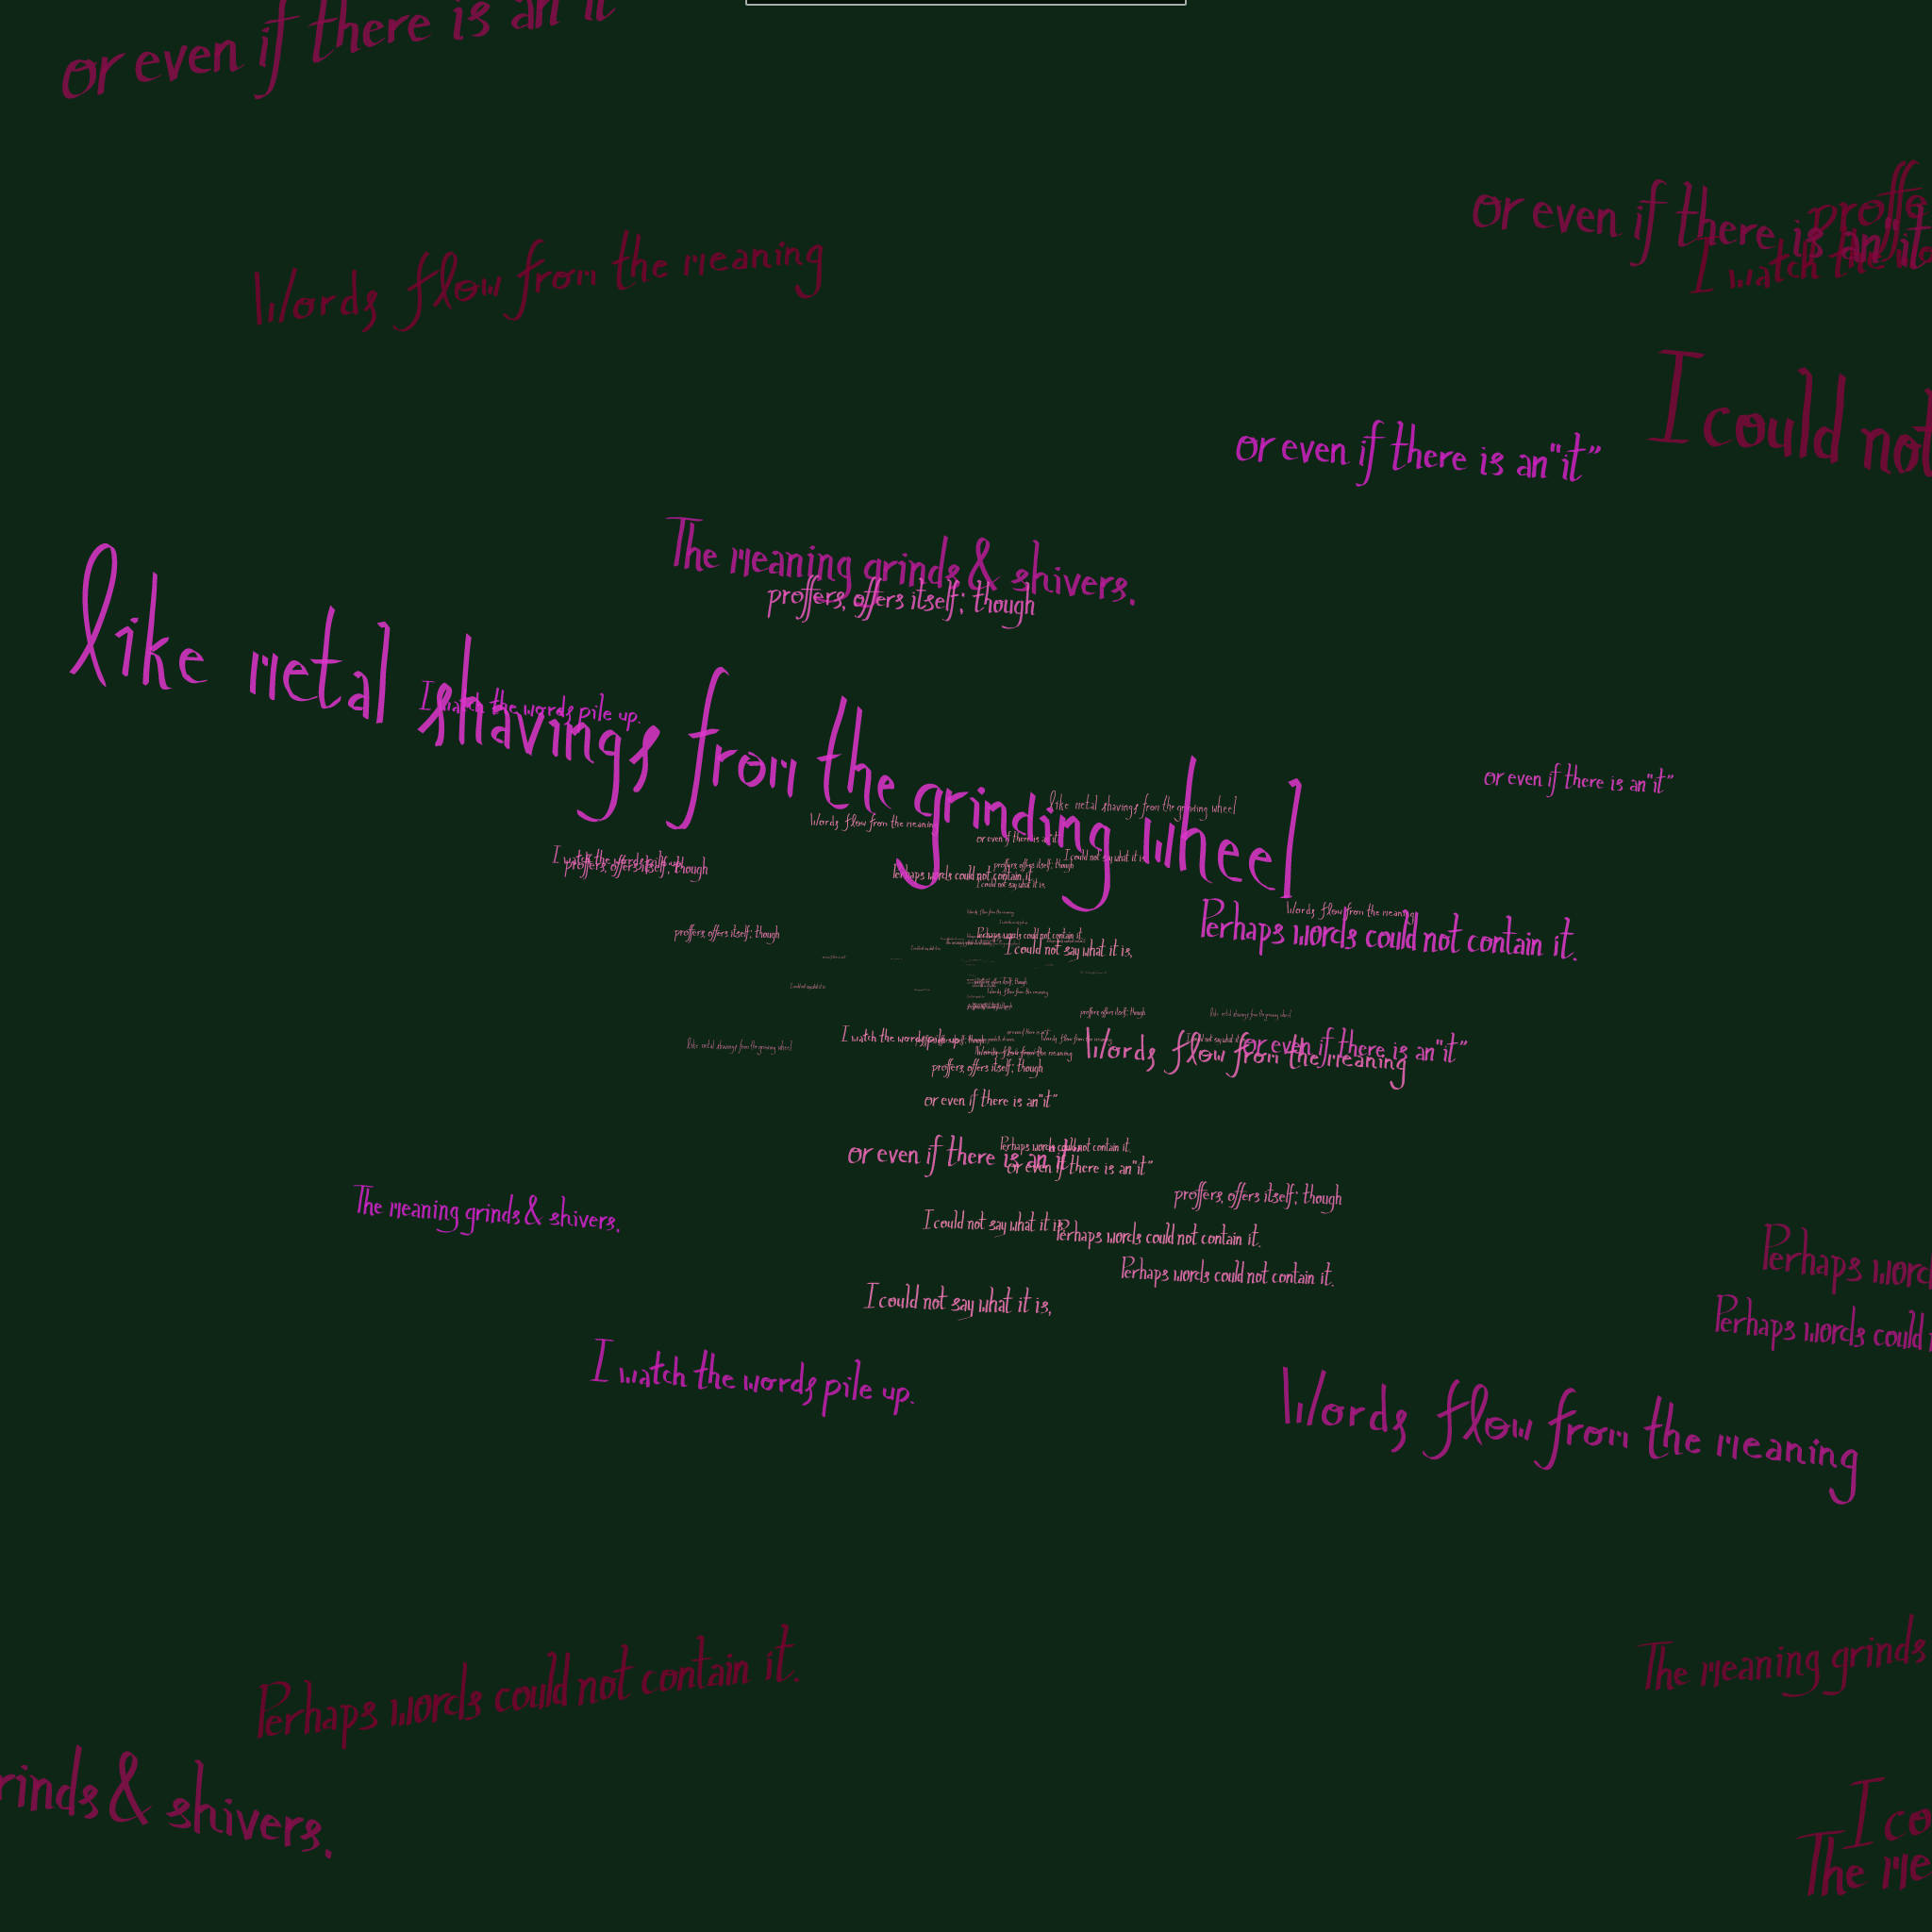 or even if there is an "it"
or even if there is an "it"
proffe
I watch the wo
Words flow from the meaning
I could not
or even if there is an "it"
The meaning grinds & shivers.
proffers, offers itself; though
like metal shavings from the grinding wheel
I watch the words pile up.
or even if there is an "it"
like metal shavings from the grinding wheel
Words flow from the meaning
or even if there is an "it"
I could not say what it is,
I watch the words pile up.
proffers, offers itself; though
proffers, offers itself; though
Perhaps words could not contain it.
I could not say what it is,
Words flow from the meaning
Perhaps words could not contain it.
proffers, offers itself; though
Perhaps words could not contain it.
I could not say what it is,
proffers, offers itself; though
Words flow from the meaning
proffers, offers itself; though
like metal shavings from the grinding wheel
I watch the words pile up.
like metal shavings from the grinding wheel
Words flow from the meaning
I could not say what it is,
or even if there is an "it"
Words flow from the meaning
Words flow from the meaning
proffers, offers itself; though
or even if there is an "it"
or even if there is an "it"
Perhaps words could not contain it.
or even if there is an "it"
The meaning grinds & shivers.
proffers, offers itself; though
I could not say what it is,
Perhaps words could not contain it.
Perhaps words could not contain it.
Perhaps word
I could not say what it is,
Perhaps words could
I watch the words pile up.
Words flow from the meaning
Perhaps words could not contain it.
The meaning grinds
rinds & shivers.
I co
The me